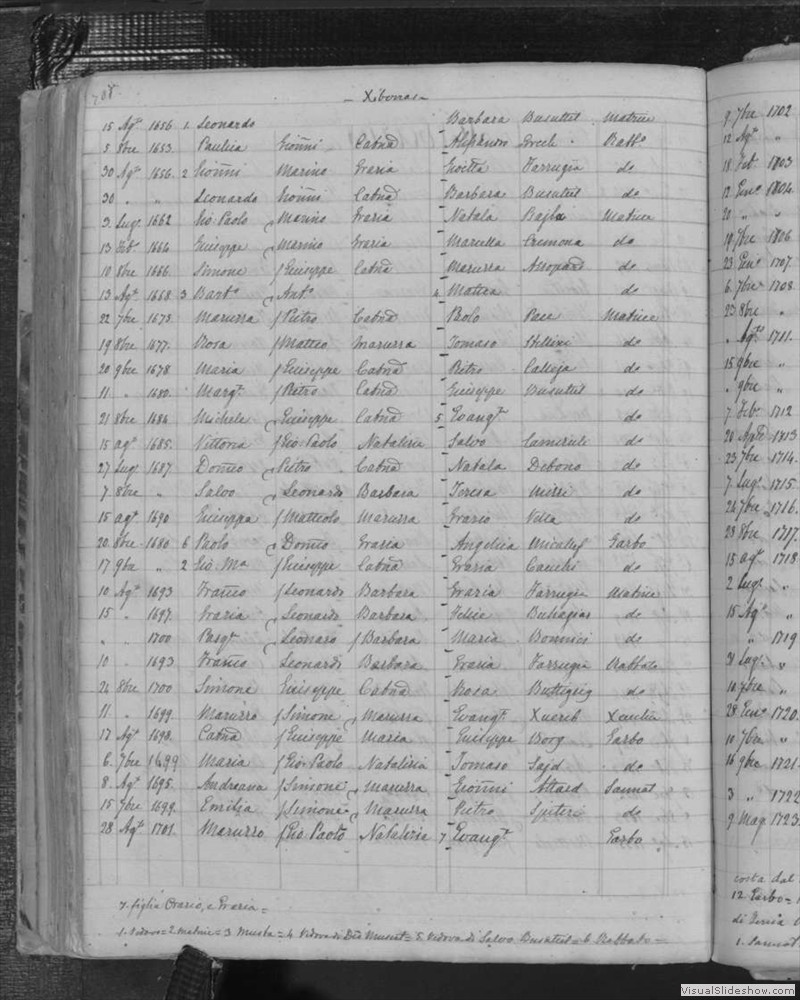 708
- Xiberras -
15 Agto 1656 1. Leonardo Barbara Busuttil Matrice
5 8bre 1653. Paulica Gionni Catnd Rabbo
30 Agto 1656. 2 Gionni Marino Grazia Farrugia do
30 " " Leonardo Gionni Catnd Barbara Busuttil do
3 Lug. 1662 Gio Paolo Marino Grazia Natala Bajla Matrice
13 1664 Giuseppe Marino Grazia Marcella Cremona do
10 8bre 1666. Simone f Giuseppe Catnd Maruzza do
13 Agto 1668 3 Barto Anto 4 Mattea do
22 7bre 1673. Maruzza f Pietro Catnd Bolo Pace Matrice
19 8bre 1677. Rosa f Matteo Maruzza Tomaso Stellini do
20 9bre 1678 Maria f Giuseppe Catnd Pietro Calleja do
11 " 1680. Margt f Pietro Catnd Giuseppe Busuttil do
21 8bre 1684 Michele Giuseppe Catnd 5 Evangt do
15 agto 1685. Vittoria f Gio Paolo Natalizia Salvo Camenzuli do
27 Lug. 1687 Domco Pietro Catnd Natala Debono do
7 8bre " Salvo Leonardo Barbara Teresa Mizzi do
15 agto 1690 Giuseppa f Matteolo Maruzza Grazio Vella do
20. 8bre 1680 6 Paolo Domco Grazia Angelica Micallef Garbo
17 9bre " 2 Gio. Ma f Giuseppe Catnd Grazia Cauchi do
10 Agto 1693 Franco f Leonardo Barbara Grazia Farrugia Matrice
15 " 1697. Grazia Leonardo Barbara Felice Buhagiar do
" " 1700 Pasqt Leonaro f Barbara Maria Bonnici do
10 " 1693 Franco Leonardo Barbara Grazia Farrugia Rabbato
24 8bre 1700 Simone Giuseppe Catnd Rosa Buttigieg do
11 " 1699. Maruzzo f Simone Maruzza Evangt Xuereb Xeuchia
17 Agto 1698. Catnd f Giuseppe Maria Giuseppe Borg Garbo
6. 7bre 1699 Maria f Gio. Paolo Natalizia Tomaso Sajd do
8 Agto 1695. Andreana f Simone Maruzza Gionni Attard Sannat
15 7bre 1699. Emilia f Simone Maruzza Pietro Spiteri do
28 Agto 1701. Maruzzo f Gio Paolo Natalizia 7 Evangt Garbo
7. figlia Orazio, e Grazia =
1. Vedova = 2 Matrice = 3 Musta = 4 Vedova di Muscat = 5. Vedova di Salvo Busuttil = 6 Rabbato =
9 7bre 1702
12 Agto "
18 1803
12 Geno 1804
20 " "
19 7bre 1806
23 Geno 1707.
6. 7bre 1708.
23 8bre "
" Agto 1711.
15 9bre "
" 9bre "
7 Feb. 1712
20 1813
23 7bre 1714.
7 Lug. 1715
24 7bre 1716.
28 8bre 1717.
15 agto 1718
2 Lug. "
15 Agto "
" " 1719
31 Lug. "
7bre "
28 Geno 1720
10 7bre "
16 9bre 1721
3 " 1722
9 Mag. 1723
costa dal
12. Garbo =
di
1. Sannat
VisualSlideshow.com